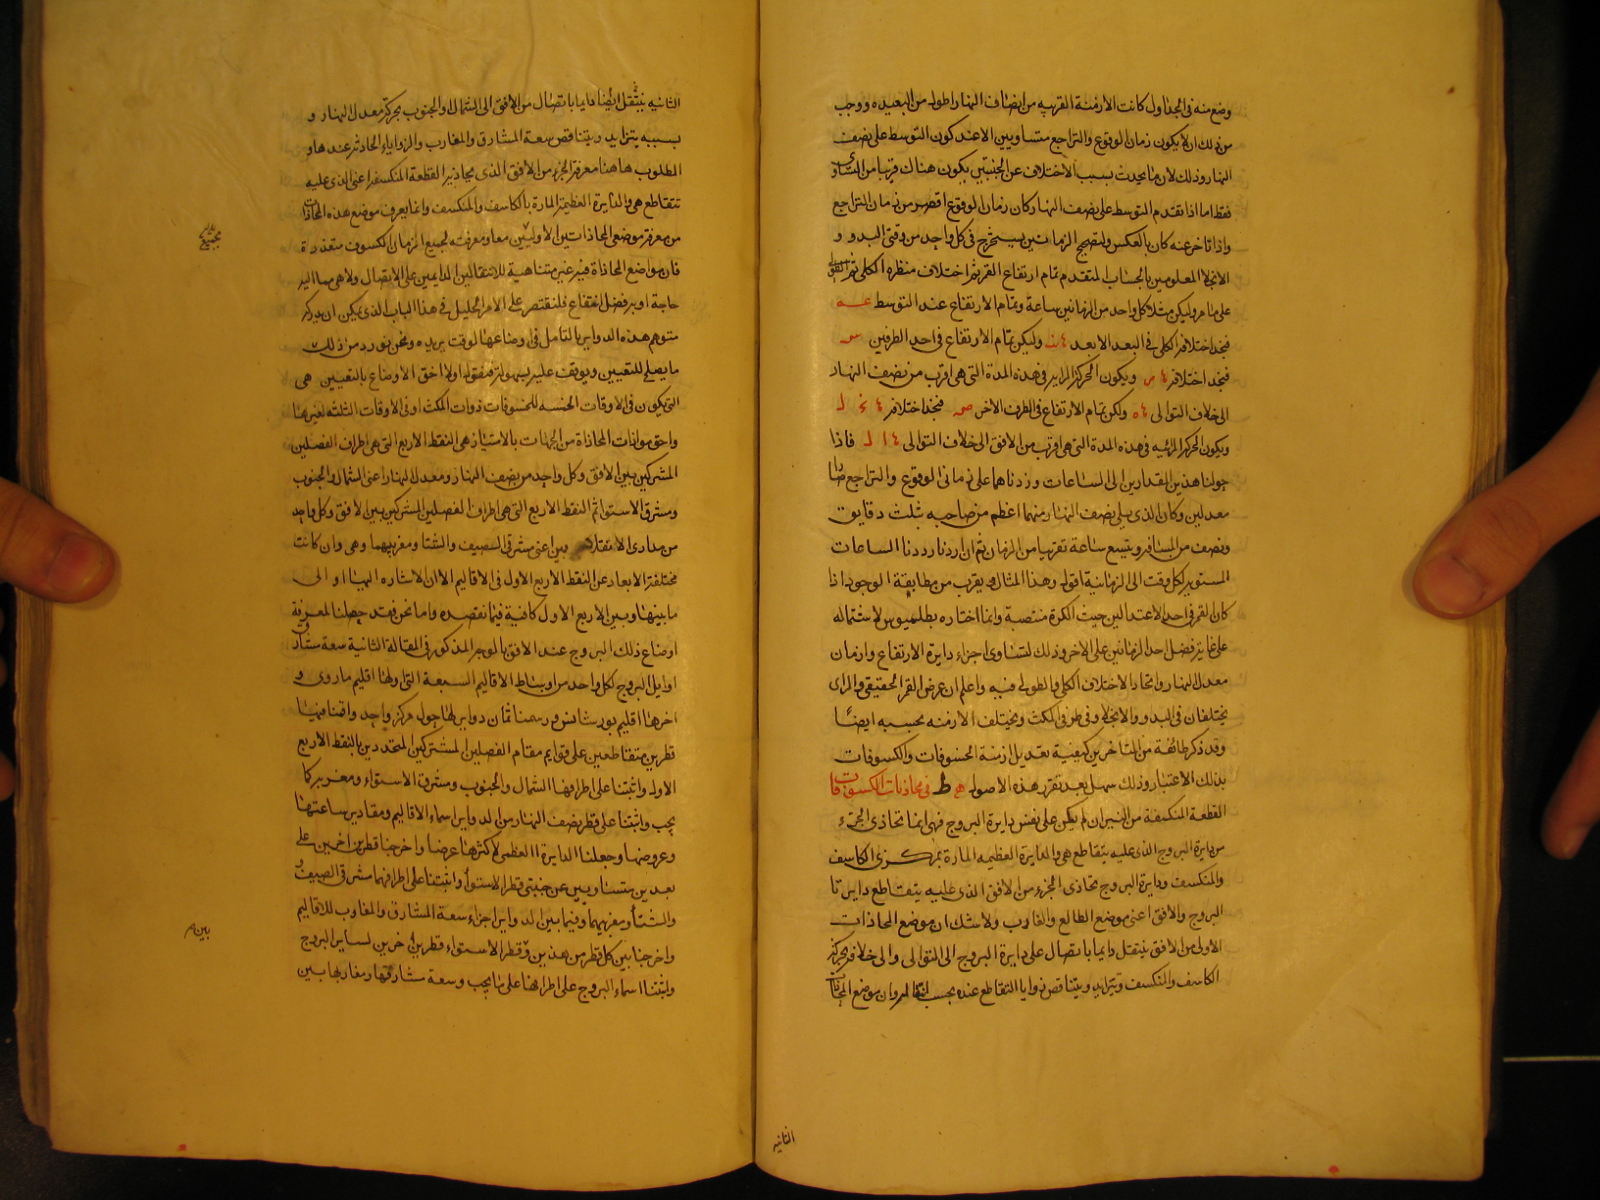 وضع منه فى الجداول كانت الازمنة القريبه من انصاف النهار اطول من البعيده ووجب
من ذلك ان لا يكون زمان الوقوع والتراجع متساويين الا عند كون التوسط على نصف
النهار وذلك لان ما يحدث بسبب الاختلاف عن الجنبتين يكون هناك قريبا من التساوى
فقط اما اذا تقدم التوسط على نصف النهار كان زمان الوقوع اقصر من زمان التراجع
واذا تاخر عنه كان بالعكس ولتصحيح الزمانين يستخرج فى كل واحد من وقتى البدو و
الانجلا المعلومين بالحساب المتقدم تمام ارتفاع القمر ثم اختلاف منظره الكلى
على ما مر وليكن مثلا كل واحد من الزمانين ساعة وتمام الارتفاع عند التوسط عه
فنجد اختلافه الكلى فى البعد الابعد وليكن تمام الارتفاع فى احد الطرفين س
فنجد اختلافه ويكون الحركة المرايه فى هذه المدة التى هى اقرب من نصف النهار
الى خلاف التوالى وليكن تمام الارتفاع فى الطرف الاخر ص فنجد اختلافه
ويكون الحركة المرئيه فى هذه المدة التى هى اقرب من الافق الى خلاف التوالى فاذا
حولنا هذين المقدارين الى الساعات وزدناهما على زمانى الوقوع والتراجع صارا
معدلين وكان الذى يلى نصف النهار منهما اعظم من صاحبه ثلث دقايق
ونصف من المسافه وبتسع ساعة تقريبا من الزمان ثم ان اردنا رددنا الساعات
المستويه لكل وقت الى الزمانية اقول وهذا المثال يقرب من مطابقة الوجود اذا
كان القمر فى احد الاعتدالين حيث الكرة منتصبة وانما اختاره بطلميوس لاشتماله
على غاية فضل احد الزمانين على الاخر وذلك لتساوى اجزاء دايرة الارتفاع وازمان
معدل النهار واتحاد الاختلاف الكلى والطولى فيه واعلم ان عرض القمر الحقيقى والمرائى
يختلفان فى البدو والانجلاء وفى طرفى المكث ويختلف الازمنه بحسبه ايضًا
وقد ذكر طائفة من المتاخرين كيفية تعديل ازمنة الخسوفات والكسوفات
بذلك الاعتبار وذلك سهل بعد تقرر هذه الاصول ط فى محاذيات الكسوفات
القطعة المنكسفة من النيران لم يكن على نفس دايرة البروج فهى انما تحاذى الجزء
من دايرة البروج الذى عليه يتقاطع هى والدايرة العظيمه المارة بمركزى الكاسف
والمنكسف ودايرة البروج تحاذى الجزء من الافق الذى عليه يتقاطع دايرتا
البروج والافق اعنى موضع الطالع والغارب ولا شك ان موضع المحاذات
الاولى من الافق ينتقل دايما باتصال على دايرة البروج الى التوالى والى خلافه بحركة
الكاسف والمنكسف ويتزايد ويتناقص زوايا التقاطع عنده بحسب انتقالهما وان موضع المحاذات
الثانيه
الثانيه ينتقل ايضا دايما باتصال من الافق الى الشمال او الجنوب بحركة معدل النهار و
بسببه يتزايد ويتناقص سعة المشارق والمغارب والزوايا الحادثه عندها و
المطلوب هاهنا معرفة الجزء من الافق الذى يحاذيه القطعة المنكسفه اعنى الذى عليه
تتقاطع هى والدايرة العظيمة المارة بالكاسف والمنكسف وانما يعرف موضع هذه المحاذات
من معرفة موضعى المحاذاتين الاوليين معا ومعرفته لجميع ازمان الكسوف متعذرة
فان مواضع المحاذاة فيه غير متناهية للانتقالين الدايمين على الاتصال ولا هى مما اليه
حاجة او به فضل انتفاع فلنقتصر على الامر الجليل فى هذا الباب الذى يمكن ان يدركه
متوهم هذه الدواير بالتامل فى اوضاعها لوقت يريده ونحن نورد من ذلك
ما يصلح للتعيين ويوقف عليه بسهولة فنقول اولا احق الاوضاع بالتعيين هى
التى يكون فى الاوقات الخمسه للخسوفات ذوات المكث او فى الاوقات الثلثه لغيرها
واحق موازات المحاذاة من الجهات بالامتياز هى النقط الاربع التى هى اطراف الفصلين
المشتركين بين الافق وكل واحد من نصف النهار ومعدل النهار اعنى الشمال والجنوب
ومشرق الاستواء ثم النقط الاربع التى هى اطراف الفصلين المشتركين بين الافق وكل واحد
من مدارى الانقلابين اعنى مشرقى الصيف والشتا ومغربيهما وهى وان كانت
مختلفة الابعاد عن النقط الاربع الاول فى الاقاليم الا ان الاشاره اليها او الى
ما بينها وبين الاربع الاول كافية فيما نقصده واما نحن فقد حصلنا لمعرفة
اوضاع ذلك البروج عند الافق بالوجه المذكور فى المقالة الثانية سعة مشارق
اوايل البروج لكل واحد من اوساط الاقاليم السبعة التى اولها اقليم ماروى و
اخرها اقليم بورشانس ورسمنا ثمان دواير لها حول مركز واحد واقمنا فيها
قطرين متقاطعين على قوايم مقام الفصلين المشتركين المتحددين بالنقط الاربع
الاول واثبتنا على اطرافها الشمال والجنوب ومشرق الاستواء ومغربه كما
يجب واثبتنا على قطر نصف النهار من الدواير اسماء الاقاليم ومقادير ساعتها
وعروضها وجعلنا الدايرة العظمى لاكثرها عرضا واخرجنا قطرين اخرين على
بعدين متساويين عن جنبتى قطر الاستواء واثبتنا على اطرافهما مشرقى الصيف و
والشتاء ومغربيهما وفيما بين الدواير اجزاء سعة المشارق والمغارب للاقاليم
واخرجنا بين كل قطر من هذين وقطر الاستواء قطرين اخرين لساير البروج
واثبتنا اسماء البروج على اطرافها على ما يجب وسعة مشارقها ومغاربها بين